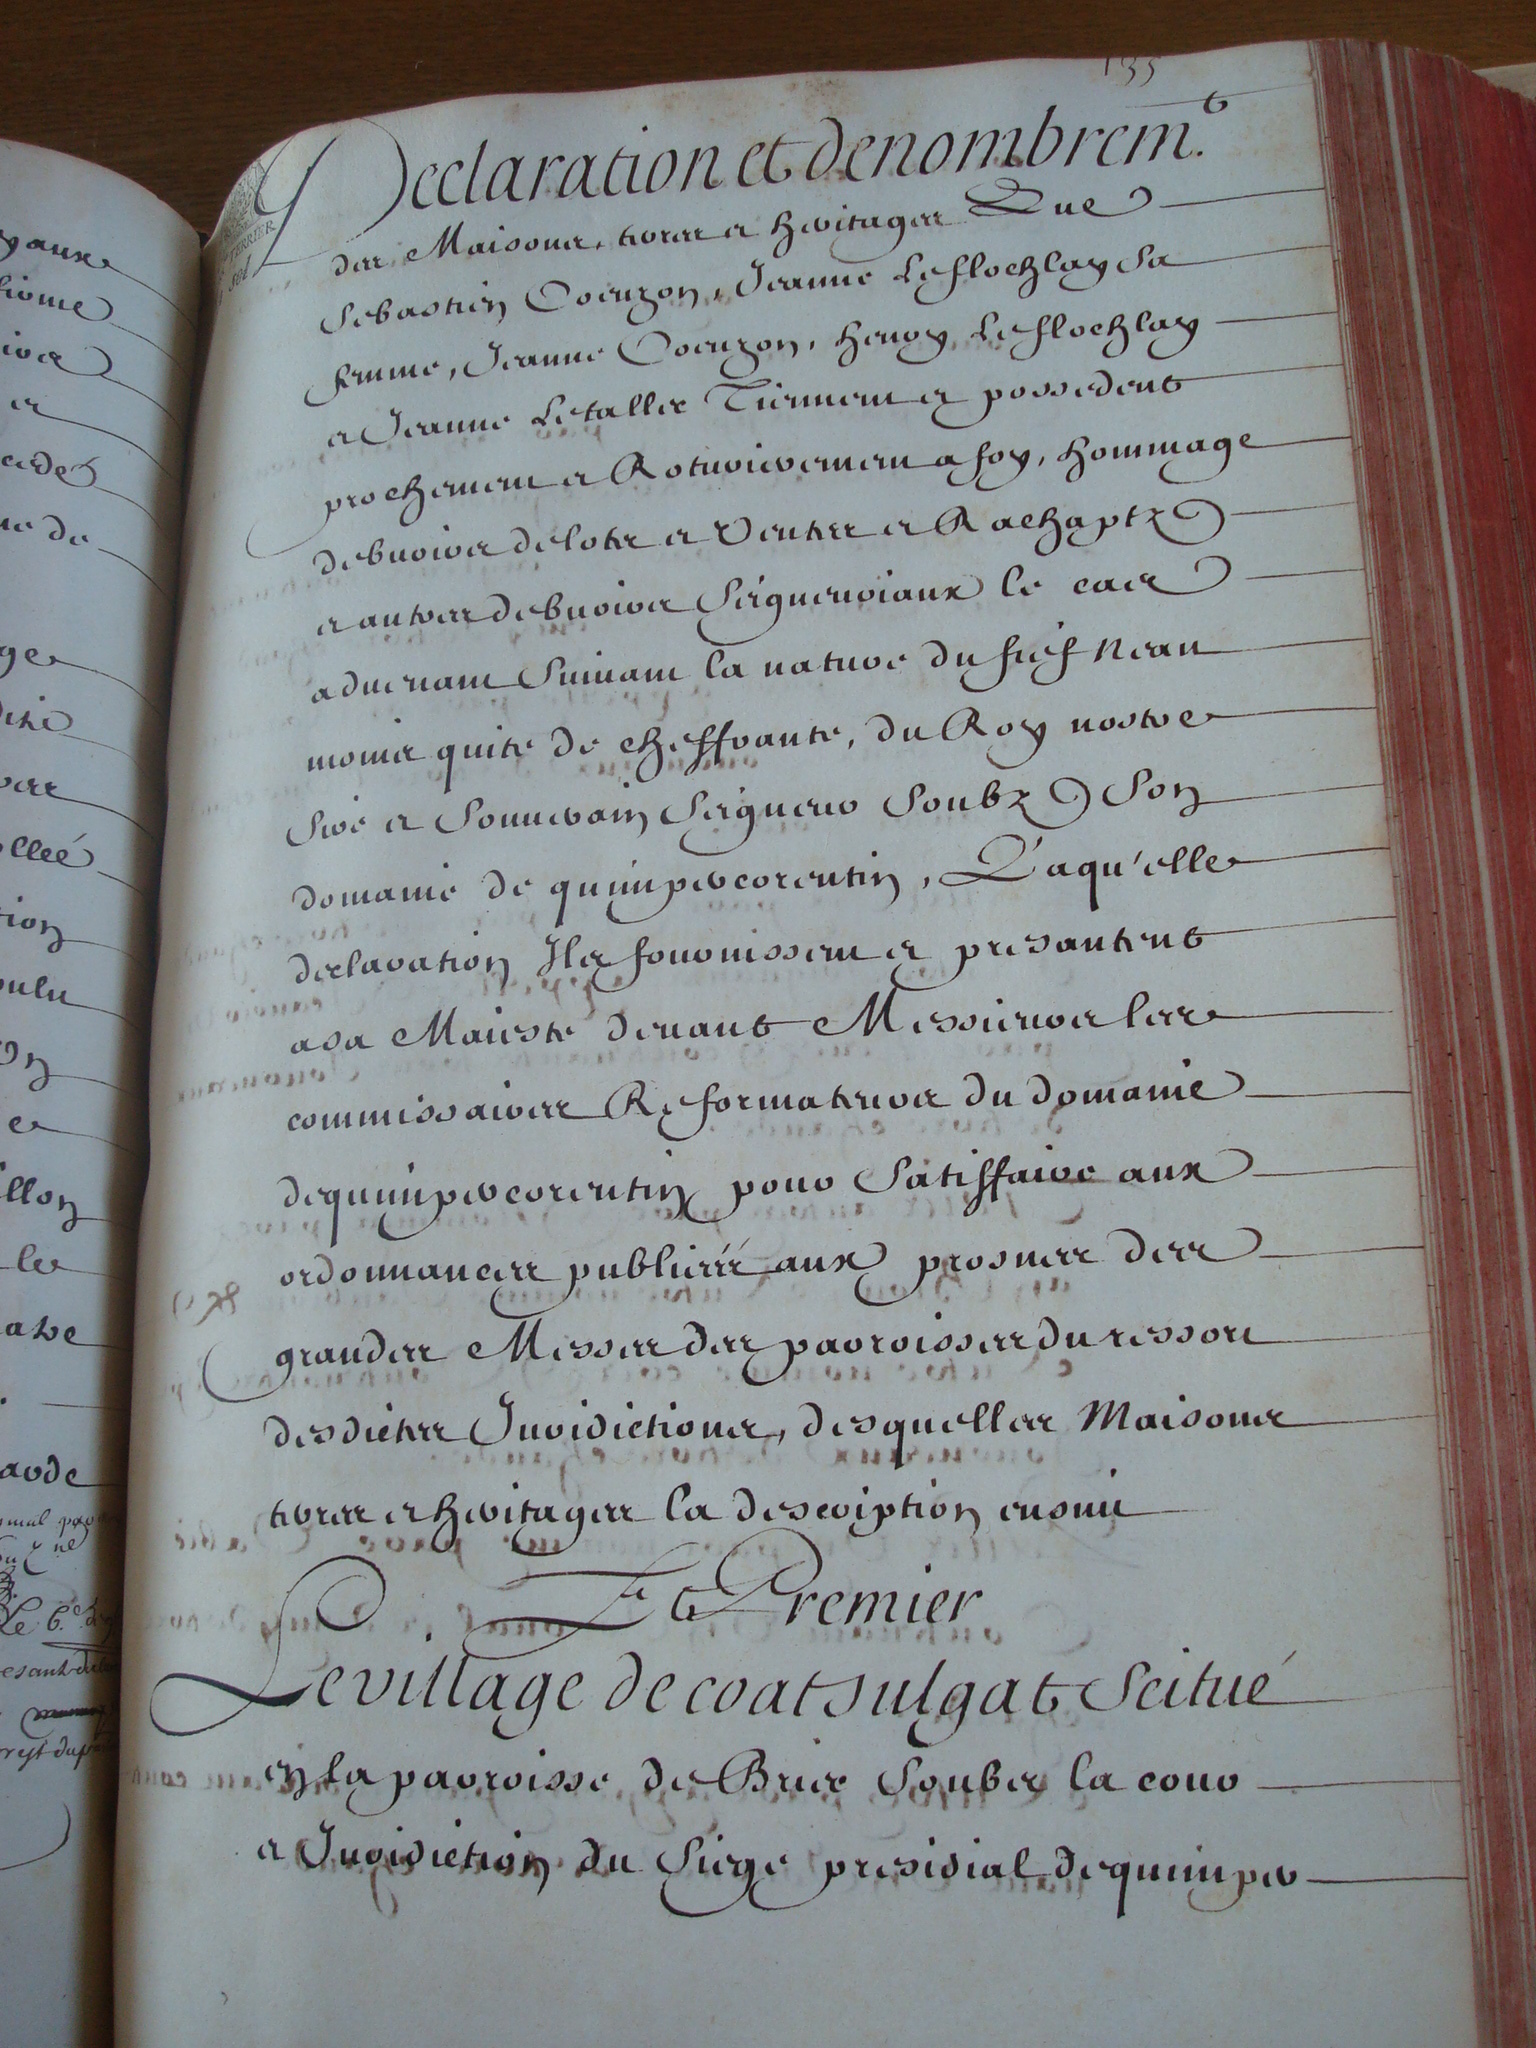 135
Declaration et denombrem.t
des Maisons, terres et heritages Que
Sebastien Coeuzon, Jeanne Leflochlay Sa
femme, Jeanne Coeuzon, henry Leflochlay
et Jeanne Letaller Tiennent et possedent
prochement et Roturierement a foy, hommage
debuoirs de lotz et Ventes et Rachaptz
et autres debuoirs Seigneuriaux le cas
aduenant Suiuant la nature du fief Nean
moins quite de cheffrante, du Roy nostre
Sire et Souuerain Seigneur Soubz Son
domaine de quimpercorentin, Laqu'elle
declaration Ils fournissent et presantent
a sa Maieste deuant Messieurs les
commissaires Reformateurs du domaine
de quimpercorentin pour Satiffaire aux
ordonnances publiéés aux prosnes des
grandes Messes des parroisses du ressort
desdictes Juridictions, desquelles Maisons
terres et heritages la description ensuit
Et Premier
Le village de coatsulgat Scitué
en la parroisse de Briec Soubs la cour
et Juridiction du Siege presidial de quimper